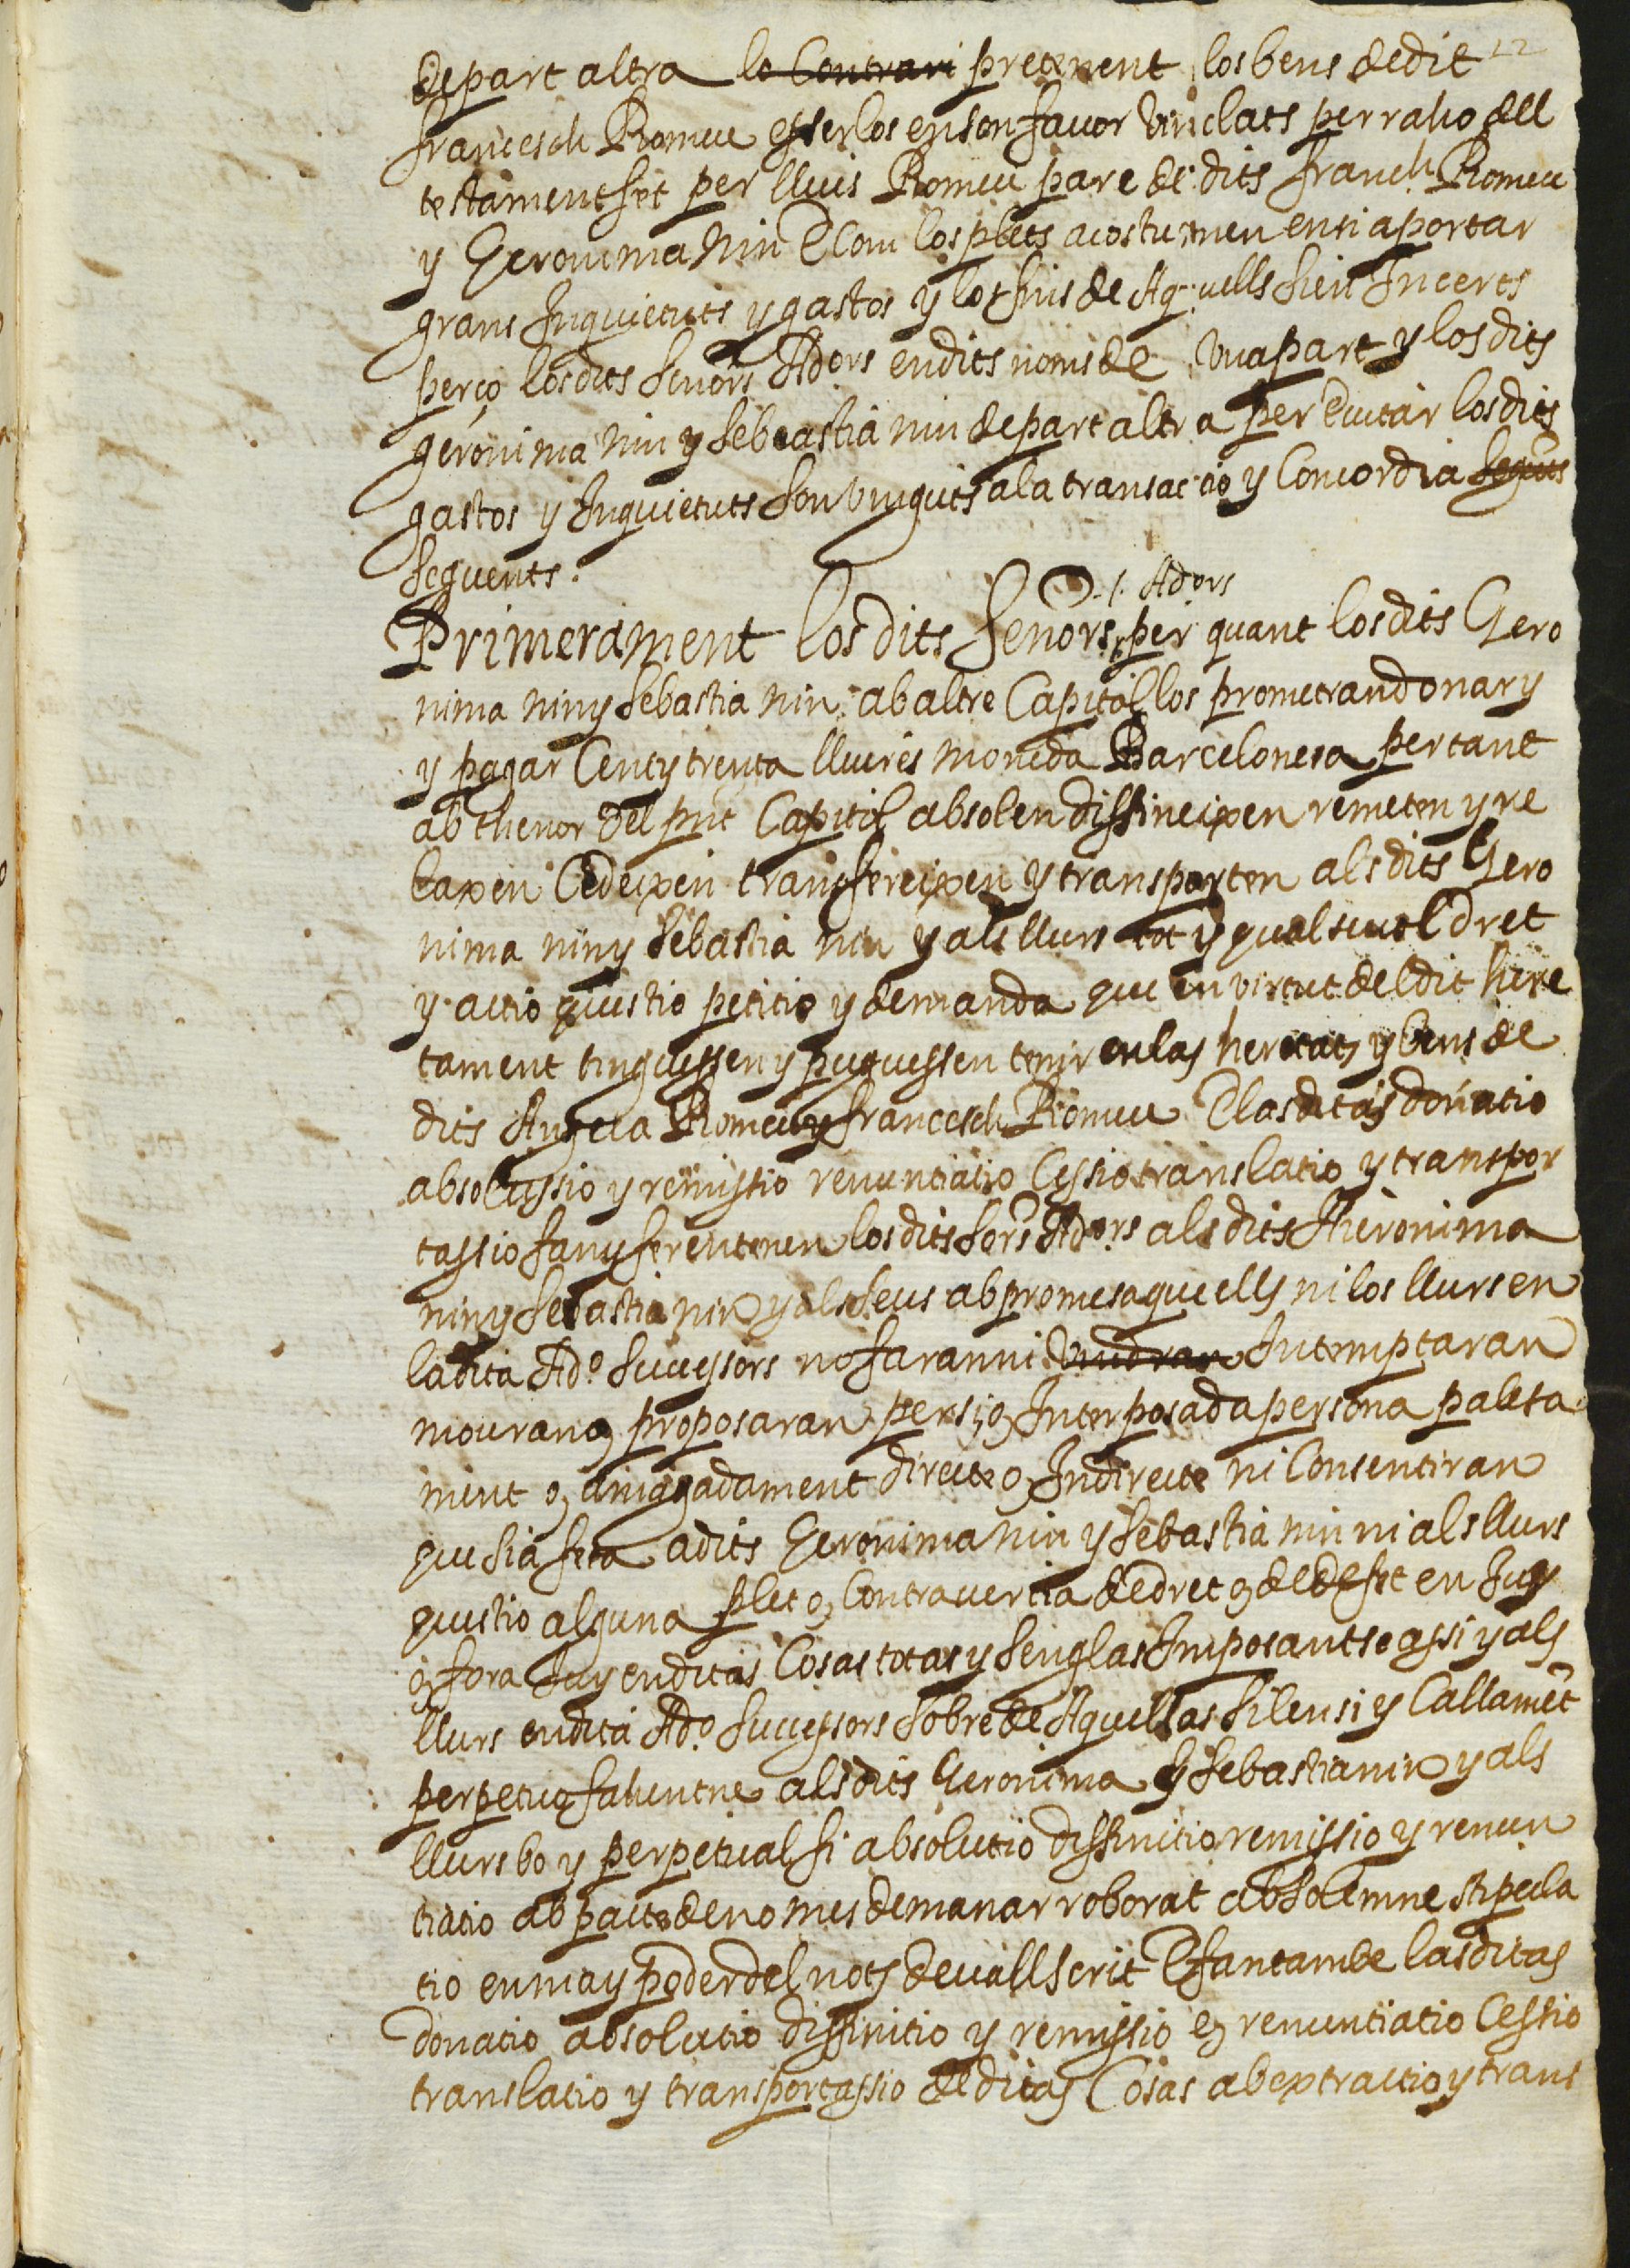 12
de part altra lo Contrari pretenent los bens de dit
francesch Romeu esserlos en son fauor Vinclats per raho dell
testament fet per lluis Romeu pare de dits franch Romeu
y Geronima Nin E Com los plets acostumen enti aportar
grans Inquietuts y gastos y los fins de Aquells sien Incerts
perço los dits Senors Adors en dits noms de Vna part y los dits
geronima nin y Sebastia nin de part altra per Euitar los dits
gastos y Inquietuts son vinguts a la transactio y Concordia seguts
seguents.
Adors
Primerament los dits Senors per quant los dits Gero
nima nin y Sebastia Nin ab altre Capitol los prometran donar y
y pagar Cent y trenta lliures moneda Barcelonesa per tant
ab thenor del pnt Capitol absolen diffineixen remeten y re
laxen Cedeixen transfereixen y transporten als dits Gero
nima nin y Sebastia nin y als llurs tot y qualseuol dret
y actio questio petitio y demanda que en virtut del dit here
tament tinguessen y puguessen tenir en las heretats y bens de
dits Angela Romeu y francesch Romeu E las ditas donatio
absolussio y remissio renuntiatio Cessio translatio y transpor
tassio fan y fer entenen los dits Sors Adors als dits Hieronima
nin y Sebastia nin y als Seus ab promesa que ells ni los llurs en
la dita Ado Successors no faran ni Vindran Intemptaran
mouran o, proposaran per si, o, Interposada persona palesta
ment o, amagadament directe o, Indirecte ni Consentiran
que sia feta a dits Geronima nin y Sebastia nin ni als llurs
questio alguna plet o, Contrauertia de dret o, de de fet en Juy
o, fora Juy en ditas Cosas totas y senglas Imposantse assi y als
llurs en dita Ado Successors sobre de Aquellas silensi y Callament
perpetuo fahentne als dits Geronima y Sebastia nin y als
llurs bo y perpetual fi absolutio diffinitio remissio y renun
tiatio ab pacte de no mes demanar roborat ab solemne stipula
tio en ma y poder del noty deuall scrit E fan tambe las ditas
donatio absolutio diffinitio y remissio e, renuntiatio Cessio
translatio y transportassio de ditas Cosas ab extractio y trans